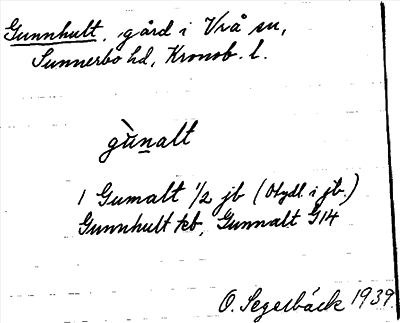 Gunnhult, gård i Vrå sn,
Sunnerbo hd, Kronob. l.
gùnalt
1 Gumalt 1/2 jb (Otydl. i jb.)
Gunnhult kb, Gunnalt G14
O. Segerbäck 1939.